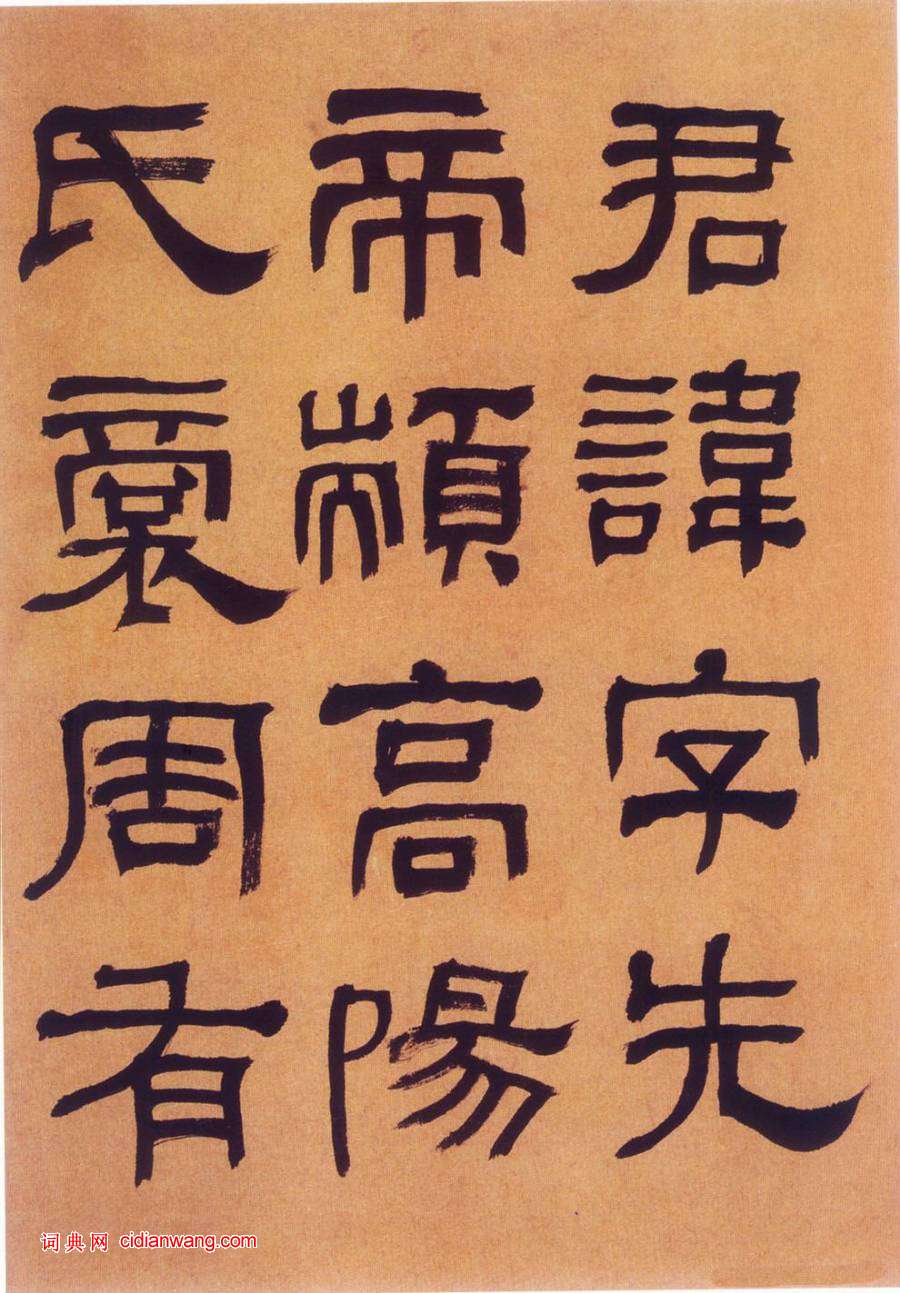 君諱字先
帝顓高陽
氏裔周有
词典网 cidianwang.com